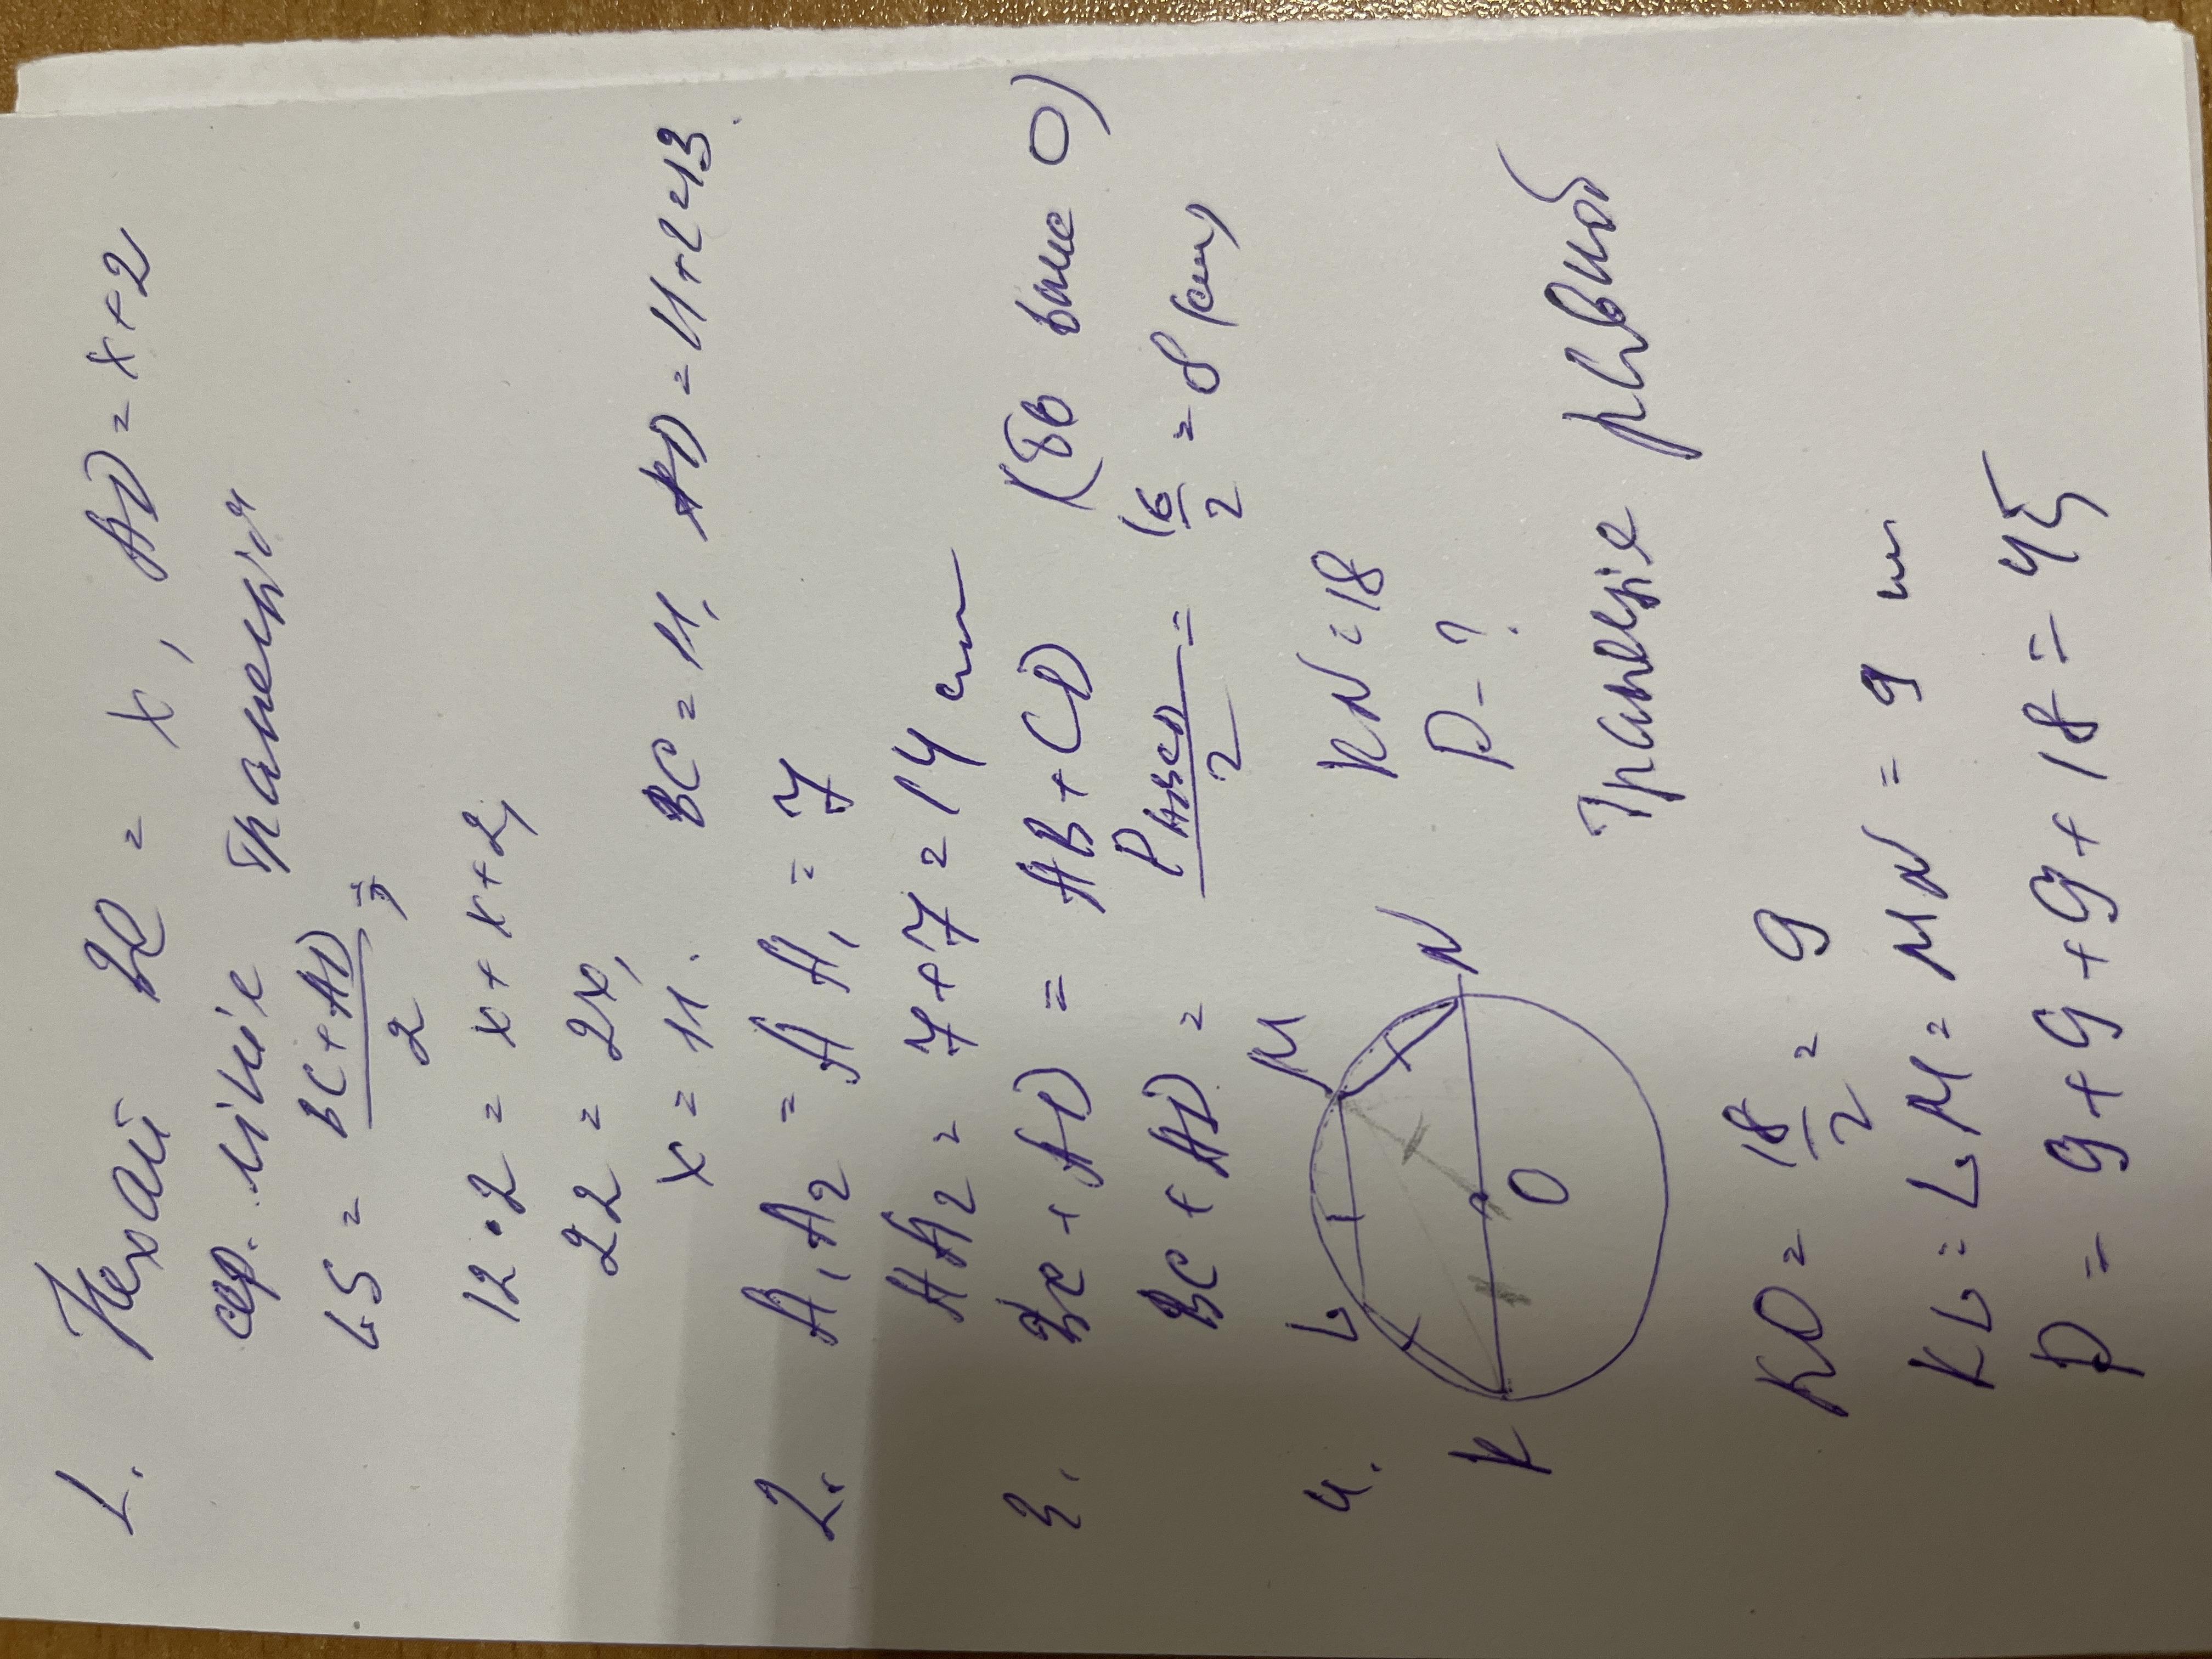 1. Нехай BC = x, AD = x+2
сер. лінія трапеції
LS = BC + AD / 2 ;
12 • 2 = x + x + 2;
22 = 2x,
x = 11. BC = 11, AD = 11+2=13.
2. A₁A₂ = AA₁ = 7
AA₂ = 7+7 = 14 см
3. BC + AD = AB + CD (бо вписане O)
BC + AD = P ABCD / 2 = 16 / 2 = 8 (см)
4. L M KN = 18
K O N P - ?
Трапеція рівноб
KO = 18 / 2 = 9
KL = LM = MN = 9 м
P = 9 + 9 + 9 + 18 = 45